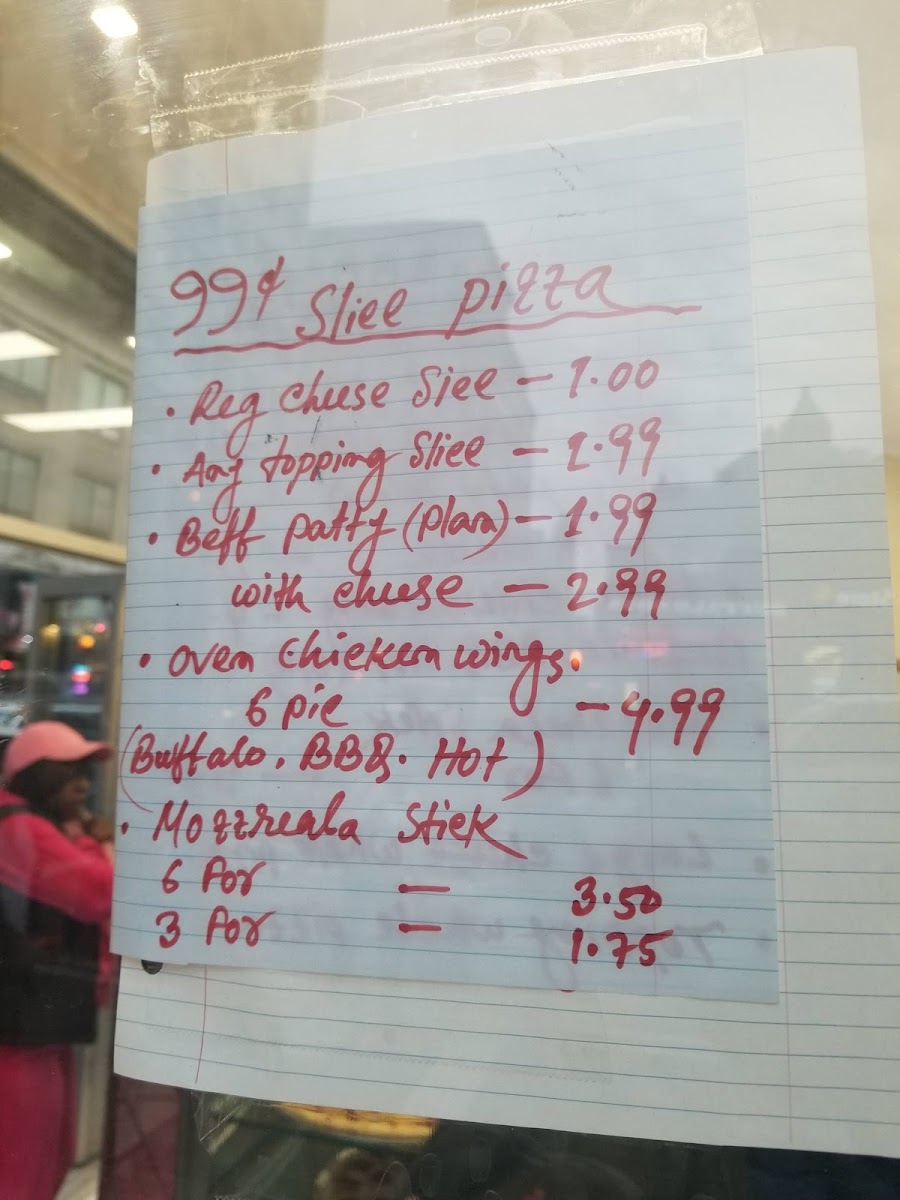 99¢ Sliee pizza
• Reg cheese Siee – 1.00
• Any topping Sliee – 1.99
• Beff patty (plan) – 1.99
with cheese – 2.99
• oven chicken wings.
6 pie – 4.99
(Buffalo . BBQ. Hot)
• Mozzreala Stick
6 for – 3.50
3 for – 1.75